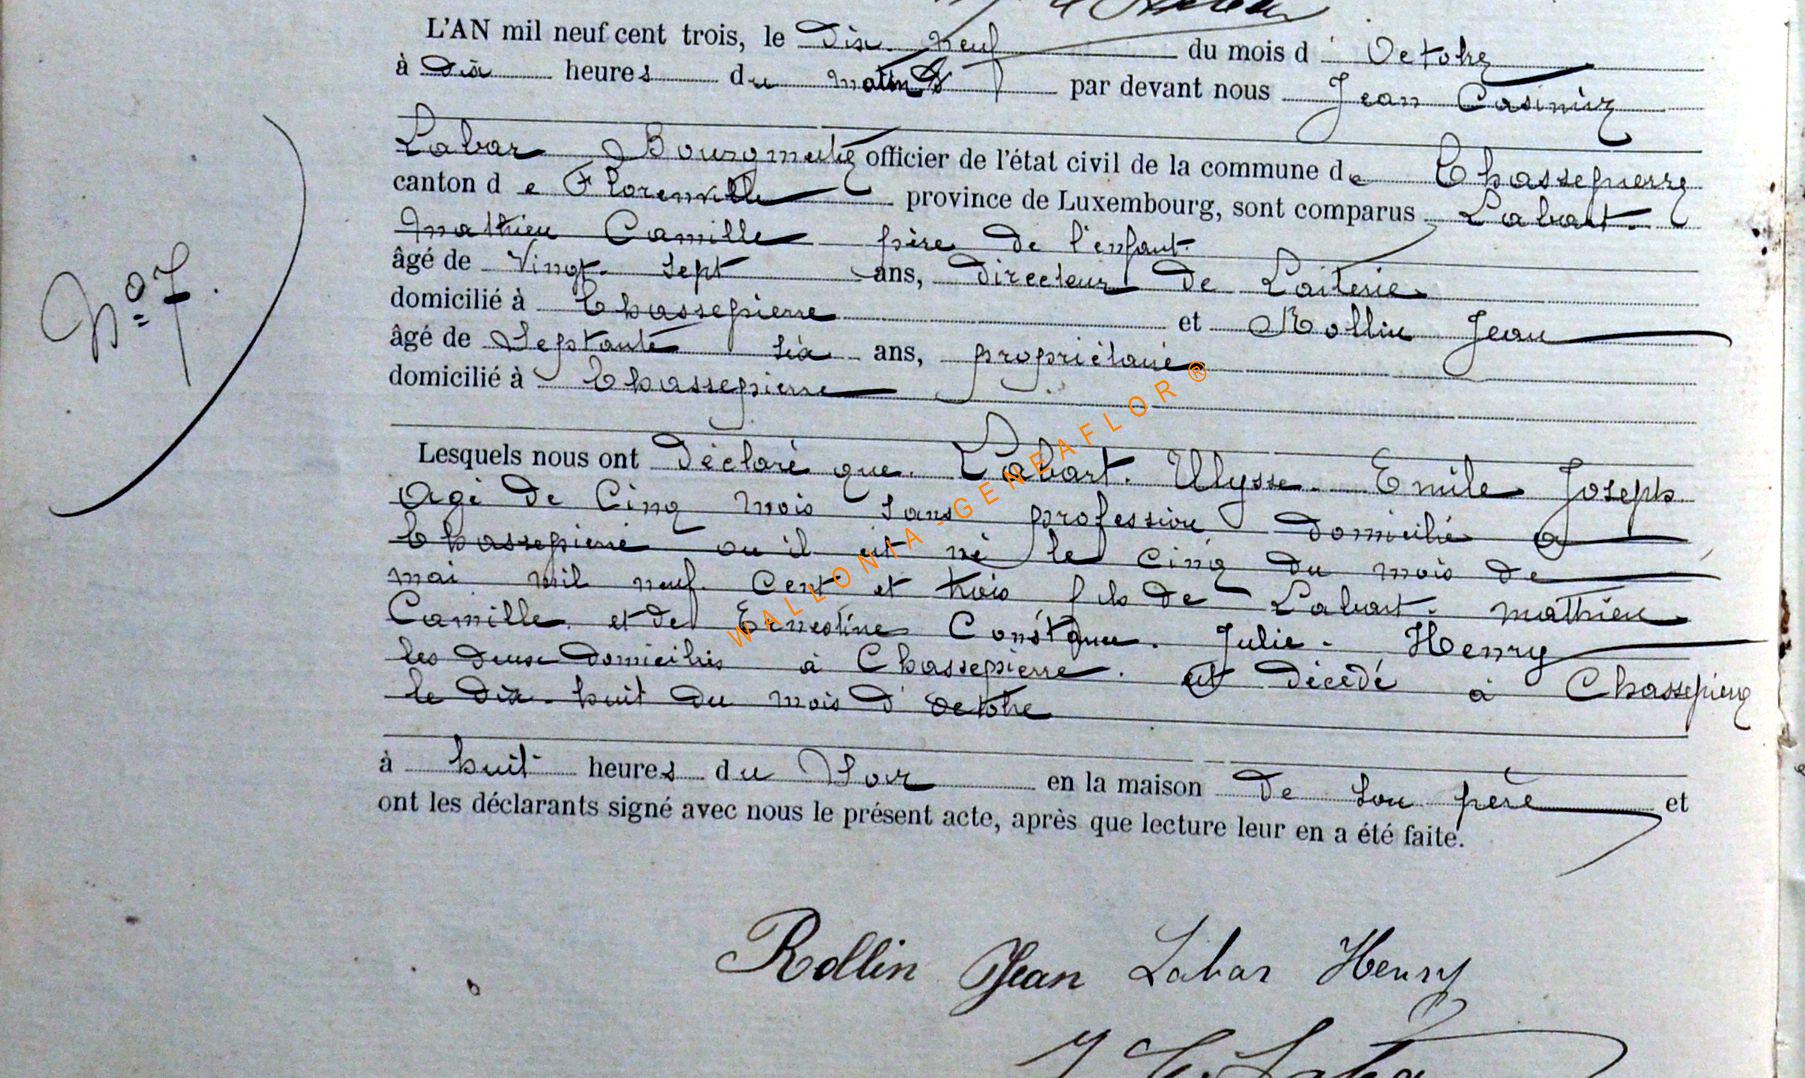 L'AN mil neuf cent trois, le dix-neuf du mois d' Octobre
à dix heures du matin par devant nous Jean Casimir
Labar Bourgmestre officier de l'état civil de la commune de Chassepierre
canton de Florenville province de Luxembourg, sont comparus Labart
Mathieu Camille père de l'enfant
âgé de Vingt-sept ans, directeur de Laiterie
domicilié à Chassepierre et Rollin Jean
âgé de Septante six ans, propriétaire
domicilié à Chassepierre
Nº 7.
Lesquels nous ont déclaré que Labart Ulysse Emile Joseph
Agé de Cinq mois sans profession domicilié à
Chassepierre ou il est né le cinq du mois de
mai mil neuf cent et trois fils de Labart Mathieu
Camille et de Ernestine Julie Henry
les deux domiciliés à Chassepierre. est décédé à Chassepierre
le dix-huit du mois d' Octobre
à huit heures du Soir en la maison de son père et
ont les déclarants signé avec nous le présent acte, après que lecture leur en a été faite.
Rollin Jean Labar Henry
WALLONIA-GENEAFLOR®